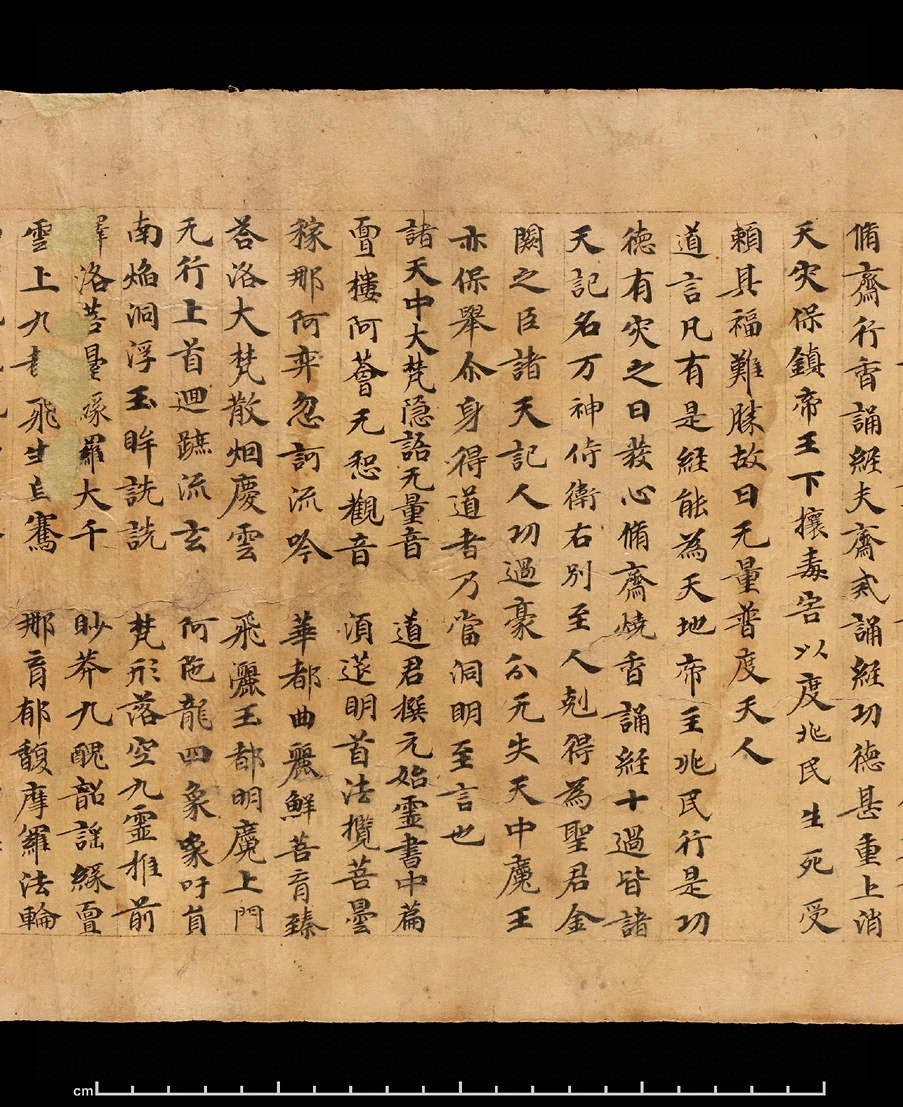 脩齋行香誦經夫齋戒誦經功德甚重上消
天灾保鎮帝王下攘毒害以度兆民生死受
賴其福難勝故曰无量普度天人
道言凡有是經能為天地帝主兆民行是功
德有灾之日發心脩齋燒香誦經十過皆諸
天記名万神侍衛右別至人剋得為聖君金
闕之臣諸天記人功過豪分无失天中魔王
亦保舉尒身得道者乃當洞明至言也
諸天中大梵隱語无量音 道君撰元始靈書中篇
亶樓阿薈无惒觀音 湏莚明首法攬菩曇
稼那阿弈忽訶流吟 華都曲麗鮮菩育臻
荅洛大梵散烟慶雲 飛灑玉都明魔上門
无行上首迴蹠流玄 阿陁龍四象象吁員
南焰洞浮玉眸詵詵 梵形落空九靈推前
澤洛菩臺緣羅大千 眇莽九醜韶謡緣亶
雲上九都飛生自騫 那育郁馥摩羅法輪
cm